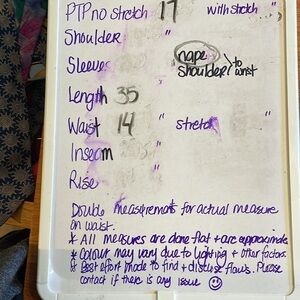 PTP no stretch 17 " with stretch "
Shoulder "
Sleeves " nape
shoulder? > to wrist
Length 35 "
Waist 14 " stretch "
Inseam "
Rise "
Double measurement for actual measure
on waist.
* All measures are done flat + are approximate.
* Colour may vary due to lighting + other factors
* Best effort made to find + disclose flaws. Please
contact if there is any issue ☺